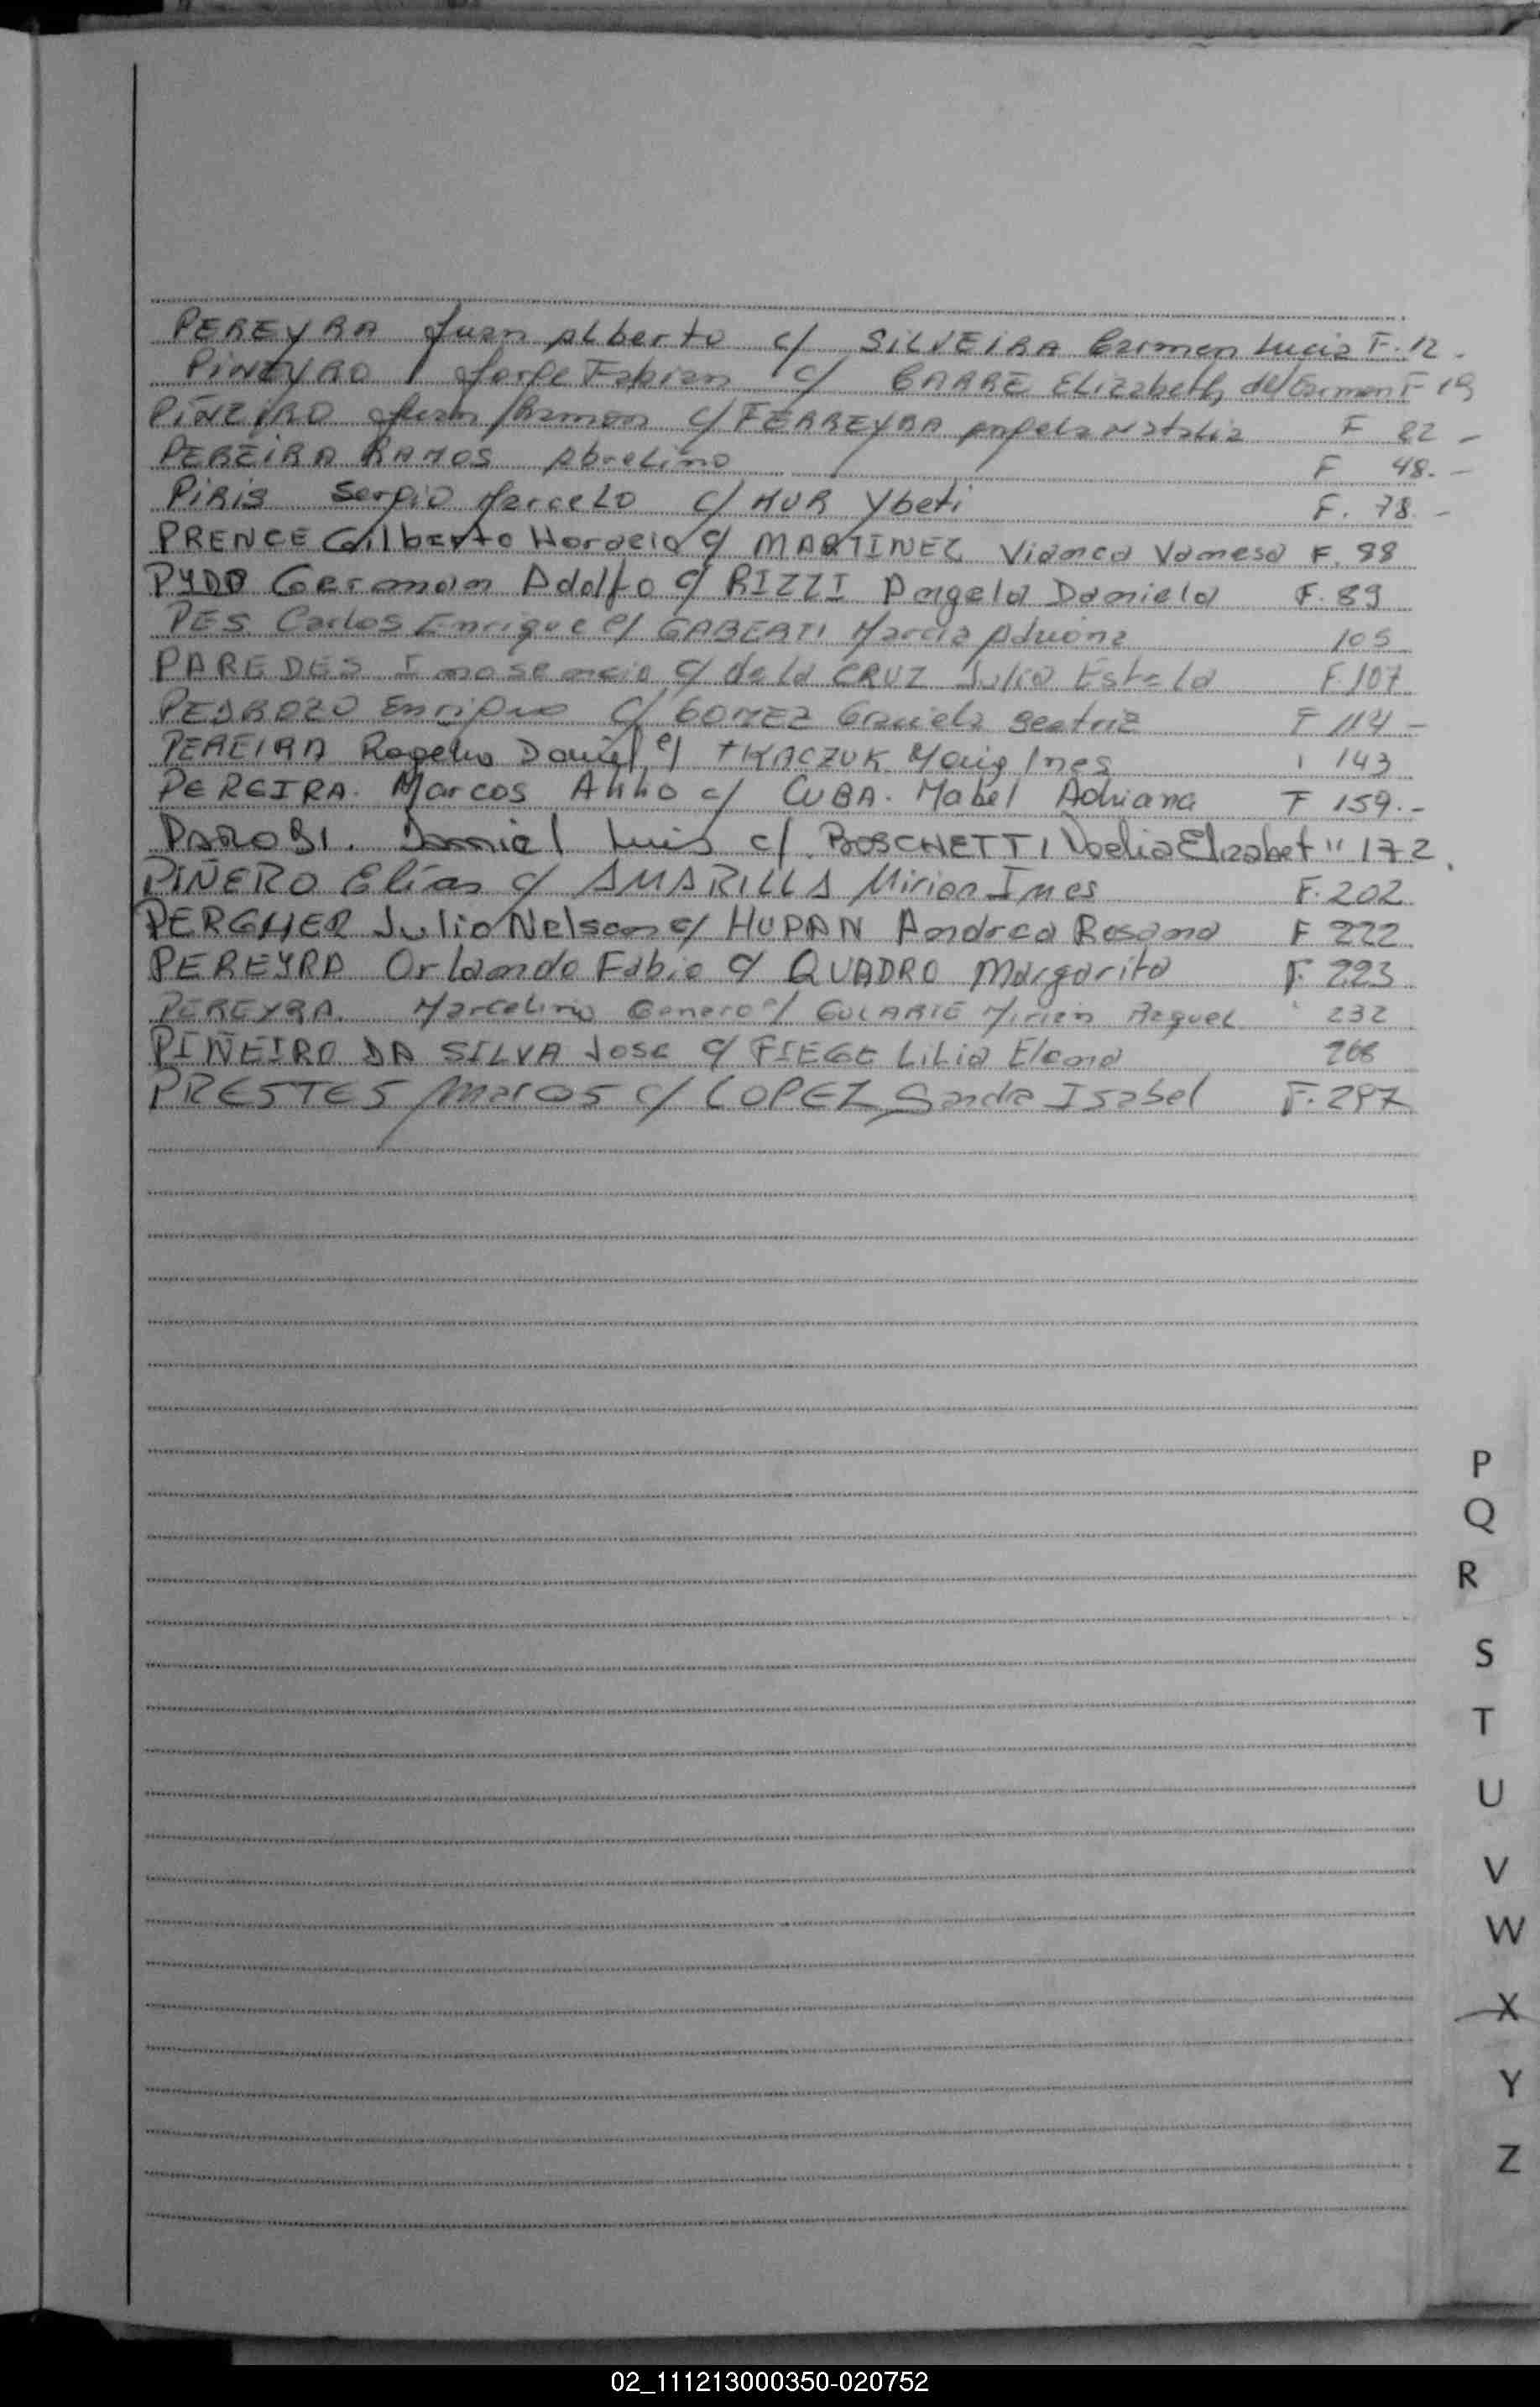 PEREYRA Juan Alberto c/ SILVEIRA Carmen Lucia F. 12 -
PINEYRO Jorge Fabian c/ CARRE Elizabeth del Carmen F 19
PIÑEIRO Juan Ramon c/ FERREYRA Angela Natalia F 22 -
PEREIRA RAMOS Abrelino F 48. -
PIRIS Sergio Marcelo c/ MUR Ybeti F. 78. -
PRENCE Gilberto Horacio c/ MARTINEZ Vianca Vanesa F. 88
PYDO German Adolfo c/ RIZZI Angela Daniela F. 89
PES Carlos Enrique c/ GABERTI Marcia Adriana 105
PAREDES Inosencio c/ de la CRUZ Julia Estela F. 107
PEDROZO Enrique c/ GOMEZ Graciela Beatriz F 114 -
PEREIRA Rogelio Daniel c/ TKACZUK Maria Ines 143
PEREIRA. Marcos Atilio c/ CUBA. Mabel Adriana F 159. -
PAROBI. Daniel Luis c/ BOSCHETTI Noelia Elizabet " 172.
PIÑERO Elías c/ AMARILLA Mirian Ines F. 202
PERGHER Julio Nelson c/ HUPAN Andrea Rosana F 222
PEREYRA Orlando Fabio c/ QUADRO Margarita F. 223
PEREYRA. Marcelino Genaro c/ GULARTE Mirian Raquel " 232
PIÑEIRO DA SILVA Jose c/ FIEGE Lilia Elena 268
PRESTES Marcos c/ LOPEZ Sandra Isabel F. 297
P
Q
R
S
T
U
V
W
X
Y
Z
02_111213000350-020752